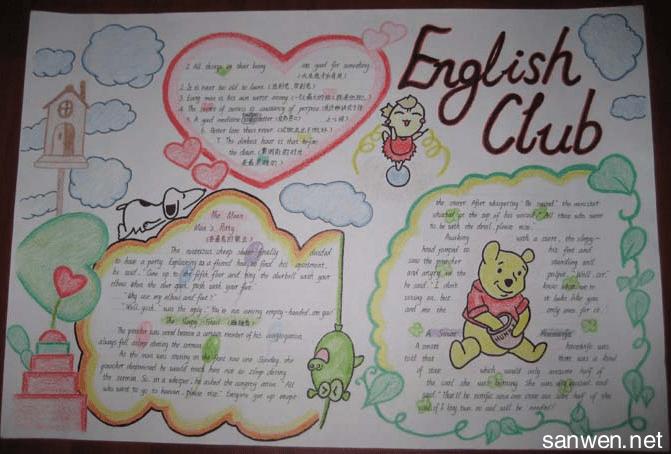 English
Club
1. All things in their being are good for something.
(天生我才必有用)
2. It is never too old to learn. (活到老,学到老)
3. Every man is his own worst enemy. (一个人最大的敌人就是他自己)
4. The secret of success is constancy of purpose.
5. A good medicine tastes bitter.
6. Better late than never.
7. The darkest hour is that before
the dawn. (黎明前的时分
是最黑暗的)
The Mean
Man's Party
The notorious cheap skate finally decided
to have a party. Explaining to a friend how to find his apartment,
he said, "Come up to the fifth floor and ring the doorbell with your
elbow. When the door open, push with your foot."
"Why use my elbow and foot?"
"Well, gosh," was the reply, "You're not coming empty-handed, are you?
The Sleepy
The preacher was vexed because a certain member of his congregation
always fell asleep during the sermon.
As the man was snoring in the front row one Sunday, the
preacher determined he would teach him not to sleep during
the sermon. So, in a whisper, he asked the congregation. "All
who want to go to heaven, please rise." Everyone got up except
the snorer. After whispering "Be seated", the minister
shouted at the top of his voice, "All those who want
to be with the devil, please rise."
Awaking with a start, the sleepy-
head jumped to his feet and
saw the preacher standing tall
and angry in the pulpit. "Well, sir,"
he said, "I don't know what we're
voting on, but it looks like you
and me the only ones for it."
A Smart Housewife
A smart housewife was
told that there was a kind
of stove which would only consume half of
the coal she was burning. She was very excited, and
said: "That'll be terrific! Since one stove can save half of the
coal, if I buy two, no coal will be needed!"
HUNNY
sanwen.net